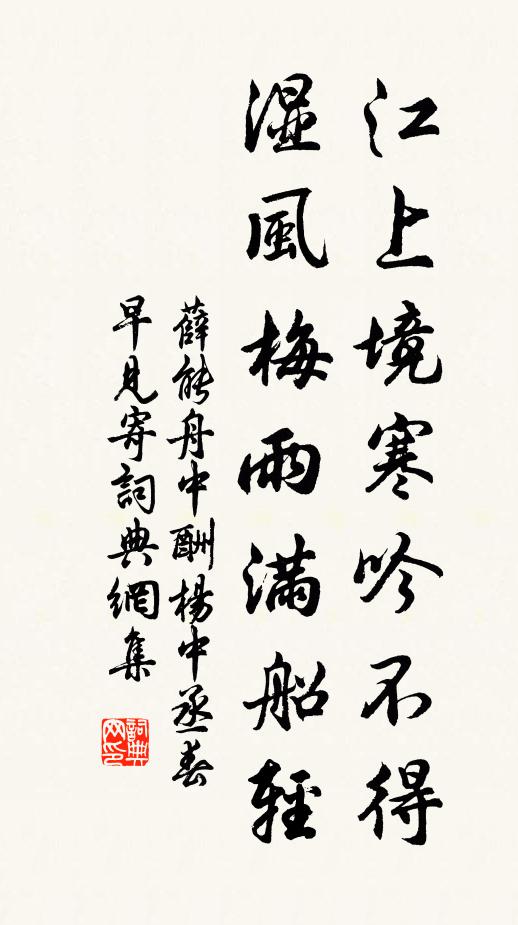 江上境寒吟不得
湿風梅雨滿船輕
薛能舟中酬楊中丞春
早見寄詞典網集
詞典網印